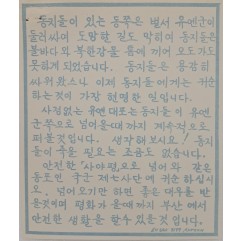 동지들이 있는 동쪽은 벌서 유엔군이
둘러싸여 도망할 길도 막히여 동지들은
불바다와 북한강을 등에 끼어 오도가도
못하게 되었습니다. 동지들은 용감히
싸워왔스나 이제 동지들에게는 귀순
하는것이 가장 현명한 일입니다.
사정없는 유엔 대포는 동지들이 유엔
군쪽으로 넘어올때까지 계속적으로
퍼불것입니다. 생각해보시오! 동지
들이 죽을 필요는 조금도 없습니다.
안전한 사아평으로 넘어와 같은
동포인 국군 제七사단에 귀순하십시
요. 넘어오기만 하면 좋은 대우를 받
을것이며 평화가 올때까지 부산에서
안전한 생활을 할수있을것입니다.